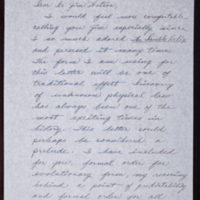 Dear Jim
I would feel more comfortable
calling you Jim especially since
I so much adored
and perused it many times.
The form I am using for
this letter will be one of
traditional effect discovery
of unknown physical laws
has always been one of the
most exciting times in
history. This letter could
perhaps be considered a
prelude. I have included
for you, formal order for
evolutionary form my reasoning
behind a point of
and formal order for all